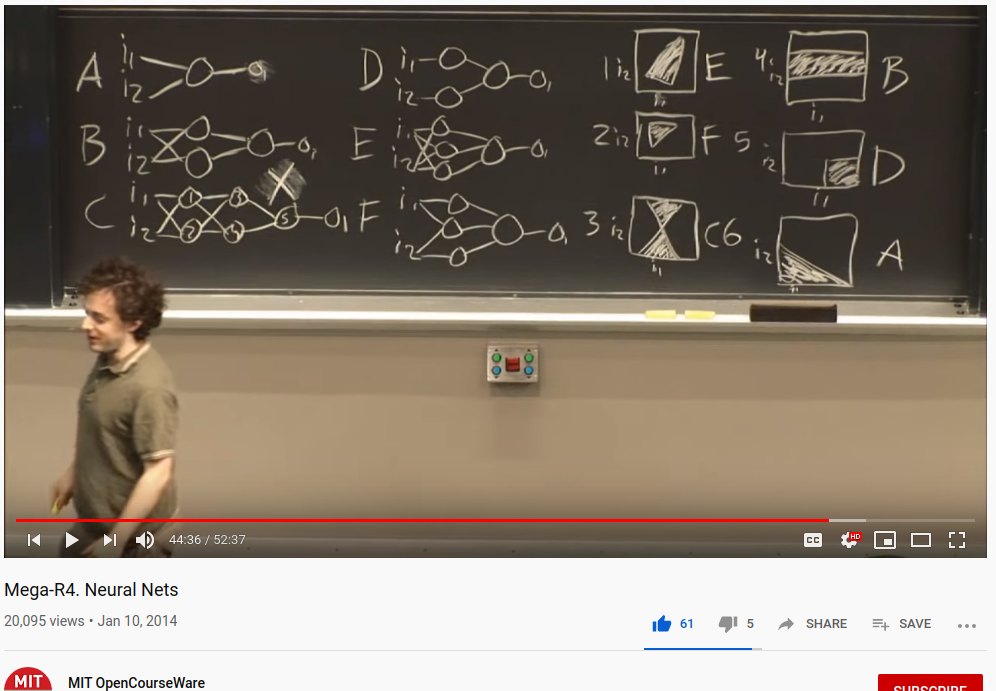 A i₁ i₂ O₁
B i₁ i₂ O₁
C i₁ i₂ 1 2 3 4 5 O₁
D i₁ i₂ O₁
E i₁ i₂ O₁
F i₁ i₂ O₁
1 i₂ i₁ E
2 i₂ i₁ F
3 i₂ i₁ C
4 i₂ i₁ B
5 i₂ i₁ D
6 i₂ i₁ A
44:36 / 52:37
CC HD
Mega-R4. Neural Nets
20,095 views • Jan 10, 2014
61 5 SHARE SAVE
MIT MIT OpenCourseWare
SUBSCRIBE